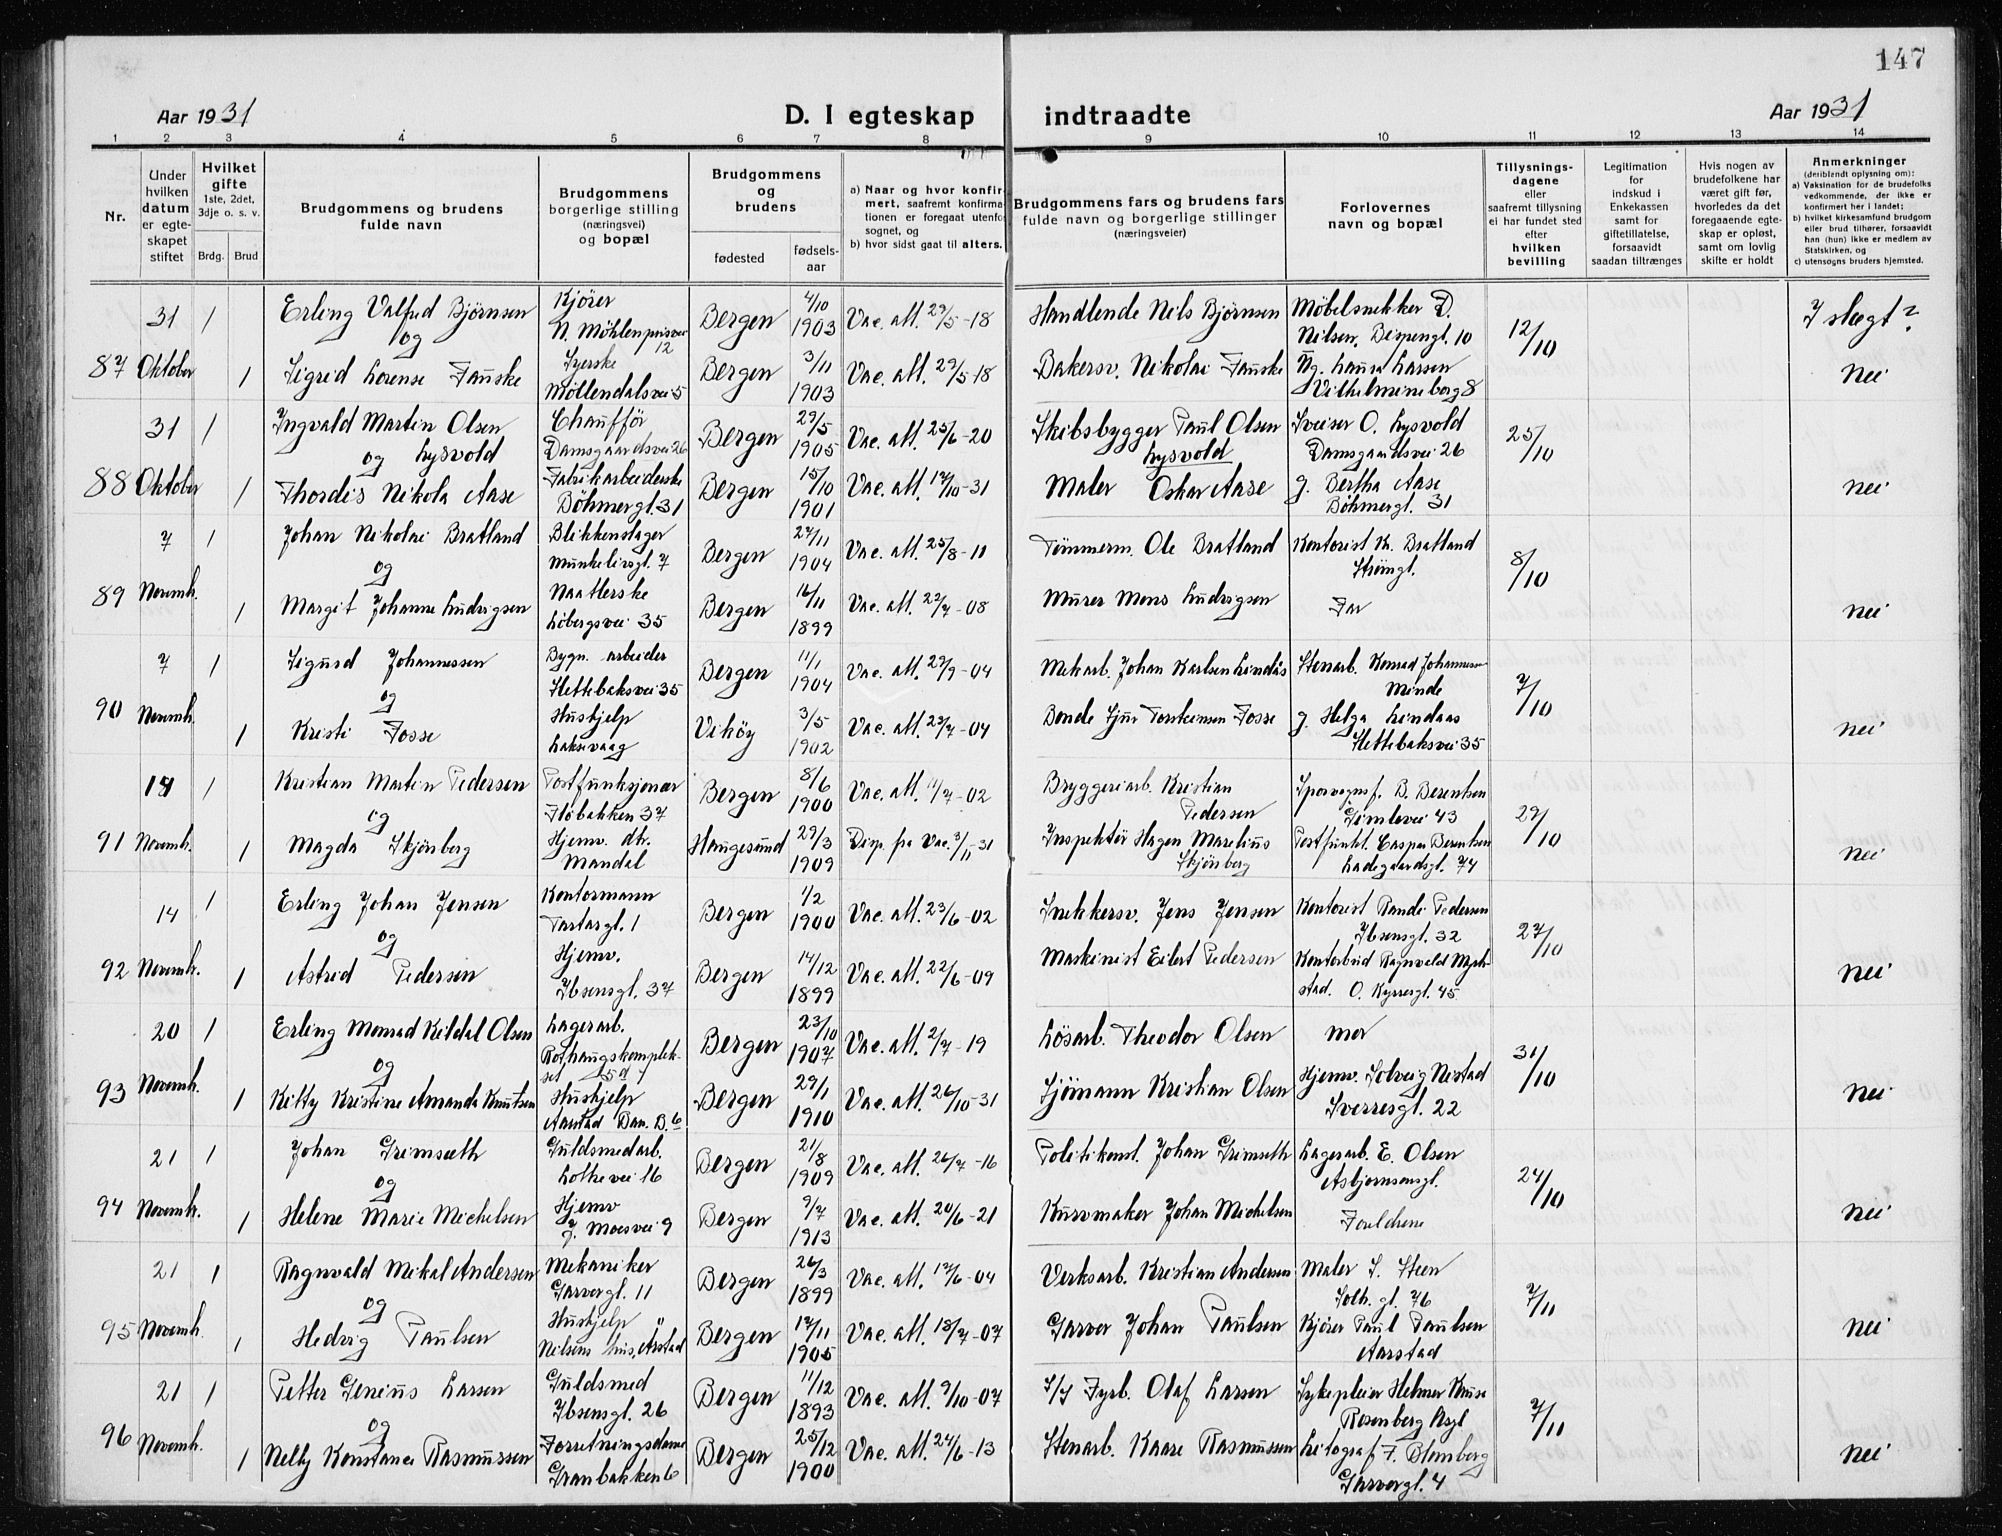 147
Aar 1931
D. I egteskap indtraadte
Aar 1931
1 2 3 4 5 6 7 8 9 10 11 12 13 14
Nr.
Under hvilken datum er egteskapet stiftet
Hvilket gifte 1ste, 2det, 3dje o. s. v.
Brdg. Brud
Brudgommens og brudens fulde navn
Brudgommens borgerlige stilling (næringsvei) og bopæl
Brudgommens og brudens
fødested fødsels-aar
a) Naar og hvor konfirmert, saafremt konfirmationen er foregaat utenfor sognet, og
b) hvor sidst gaat til alters.
Brudgommens fars og brudens fars fulde navn og borgerlige stillinger (næringsveier)
Forlovernes navn og bopæl
Tillysnings-dagene eller saafremt tillysning ei har fundet sted efter hvilken bevilling
Legitimation for indskud i Enkekassen samt for giftetillatelse, forsaavidt saadan tiltrænges
Hvis nogen av brudefolkene har været gift før, hvorledes da det foregaaende egteskap er opløst, samt om lovlig skifte er holdt
Anmerkninger (deriblandt oplysning om):
a) Vaksination for de brudefolks vedkommende, der ikke er konfirmert her i landet;
b) hvilket kirkesamfund brudgom eller brud tilhører, forsaavidt han (hun) ikke er medlem av Statskirken, og
c) utensogns bruders hjemsted.
31 1 Erling Valfred Bjørnsen Kjører Bergen 4/10 1903 Vac. att. 29/5-18 Handlende Nils Bjørnsen Møbelsnekker D. 12/10 I slegt?
og N. Møhlenprisvei 12 Nilsen, Bispengt. 10
87 Oktober 1 Sigrid Lorense Fauske Syerske Møllendalsvei 5 Bergen 3/11 1903 Vac. att. 29/5-18 Bakersv. Nikolai Fauske Ng. Hause Larsen Vilhelmineborg 8 Nei
31 1 Ingvald Martin Olsen Lysvold Chauffør Damsgaardsvei 26 Bergen 29/5 1905 Vac. att. 25/6-20 Skibsbygger Paul Olsen Lysvold Sveiser O. Lysvold Damsgaardsvei 26 25/10
og
88 Oktober 1 Thordis Nikola Aase Fabrikarbeiderske Bøhmergt. 31 Bergen 15/10 1901 Vac. att. 17/10-31 Maler Oskar Aase g. Bertha Aase Bøhmergt. 31 Nei
7 1 Johan Nikolai Bratland Blikkenslager Munkelivsgt. 7 Bergen 27/11 1904 Vac. att. 25/8-11 Tømmerm. Ole Bratland Kontorist K. Bratland Strømgt. 8/10
og
89 Novemb. 1 Margit Johanne Ludvigsen Naatlerske Løbergsvei 35 Bergen 16/11 1899 Vac. att. 22/7-08 Murer Mons Ludvigsen Far Nei
7 1 Sigurd Johannessen Bygn. arbeider Hettebaksvei 35 Bergen 11/1 1904 Vac. att. 29/9-04 Mekarb. Johan Karlsen Lindås Stenarb. Konrad Johannesen Minde 7/10
og
90 Novemb. 1 Kristi Fosse Hushjelp Laksevaag Vikøy 3/5 1902 Vac. att. 23/7-04 Bonde Sjur Torsteinsen Fosse g. Helga Lindaas Hettebaksvei 35 Nei
14 1 Kristian Martin Pedersen Postfunksjonær Fløbakken 37 Bergen 8/6 1900 Vac. att. 11/7-02 Bryggeriarb. Kristian Pedersen Sporvognsf. B. Berentsen Gimlevei 43 29/10
og
91 Novemb. 1 Magda Skjønberg Hjemv. dtr. Mandal Haugesund 29/3 1909 Disp. fra Vac. 3/11-31 Inspektør Hagen Marelius Skjønberg Postfunkt. Caspar Berentsen Ladegaardsgt. 74 Nei
14 1 Erling Johan Jensen Kontormann Tartargt. 1 Bergen 1/2 1900 Vac. att. 23/6-02 Snekkersv. Jens Jensen Kontorist Randi Pedersen Ibsensgt. 32 27/10
og
92 Novemb. 1 Astrid Pedersen Hjemv. Ibsensgt. 37 Bergen 14/12 1899 Vac. att. 22/6-09 Maskinist Eilert Pedersen Kontorbud Ragnvald stad. O. Kyrresgt. 45 Nei
20 1 Erling Monrad Keildal Olsen Lagerarb. Rothaugskomplekset Bergen 23/10 1907 Vac. att. 2/7-19 Løsarb. Theodor Olsen Mor 31/10
og
93 Novemb. 1 Kitty Kristine Amanda Knutsen Hushjelp Aarstad B. 6 Bergen 29/1 1910 Vac. att. 26/10-31 Sjømann Kristian Olsen Hjemv. Solveig Nistad Sverresgt. 22 Nei
21 1 Johan Grimsæth Guldsmedarb. Lothevei 16 Bergen 21/8 1909 Vac. att. 26/7-16 Politikonst. Johan Grimseth Lagerarb. E. Olsen Asbjørnsensgt. 24/10
og
94 Novemb. 1 Helene Marie Michelsen Hjemv J. Moesvei 9 Bergen 9/7 1913 Vac. att. 20/6-21 Kurvmaker Johan Michelsen Forældrene Nei
21 1 Ragnvald Mikal Andersen Mekaniker Garvergt. 11 Bergen 26/3 1899 Vac. att. 12/6-04 Verksarb. Kristian Andersen Maler S. Steen Solh. gt. 76 7/11
og
95 Novemb. 1 Hedvig Paulsen Hushjelp Nilsens hus, Årstad Bergen 17/11 1905 Vac. att. 18/7-07 Garver Johan Paulsen Kjører Paul Paulsen Aarstad Nei
21 1 Petter Genius Larsen Guldsmed Ibsensgt. 26 Bergen 11/12 1893 Vac. att. 9/10-07 Fyrb. Olaf Larsen Sykepleier Helmer Knuse Rosenberg Asyl 7/11
og
96 Novemb. 1 Nelly Konstance Rasmussen Forretningsdame Granbakken 6 Bergen 25/12 1900 Vac. att. 24/6-13 Stenarb. Kaare Rasmussen Litograf F. Blomberg Garvergt. 4 Nei